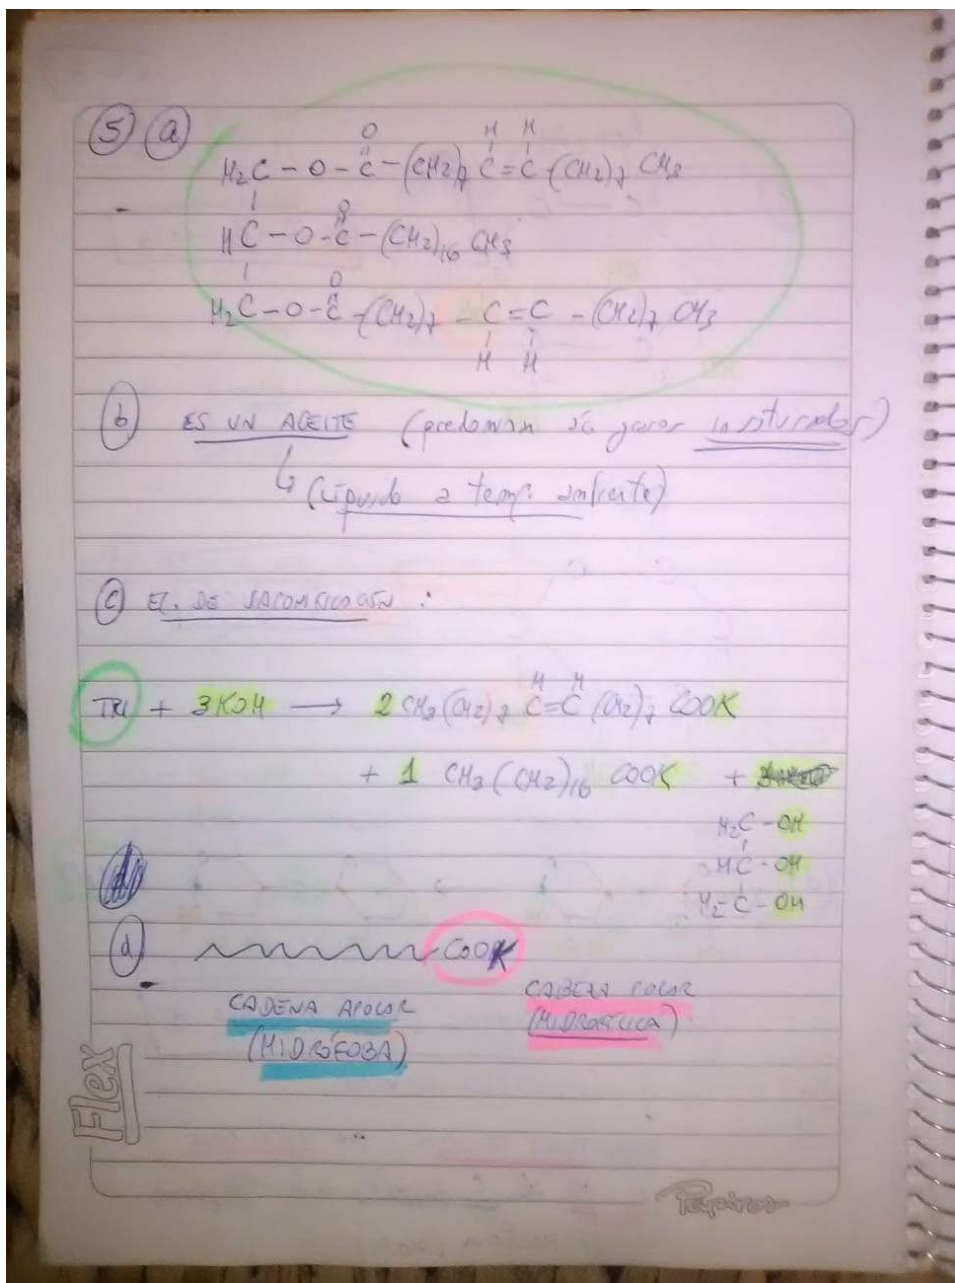 5 a
O H H
H₂C - O - C - (CH₂)₇ C = C - (CH₂)₇ CH₃
O
HC - O - C - (CH₂)₁₆ CH₃
O
H₂C - O - C - (CH₂)₇ - C = C - (CH₂)₇ CH₃
H H
b ES UN ACEITE (predominan grasos insaturados)
(Líquido a temp. ambiente)
c EC. DE SAPONIFICACIÓN :
H H
TRI + 3KOH → 2 CH₃(CH₂)₇ C=C (CH₂)₇ COOK
+ 1 CH₃(CH₂)₁₆ COOK +
H₂C - OH
HC - OH
H₂C - OH
d COOK
CADENA APOLAR CABEZA POLAR
(HIDRÓFOBA) (HIDROFÍLICA)
Flex